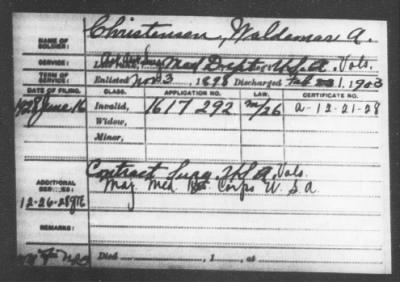 NAME OF SOLDIER: Christensen, Waldemar A.
SERVICE: Late Rank, Maj U.S.A. Vols.
TERM OF SERVICE: Enlisted Nov 3, 1898 Discharged Feb 1, 1903
DATE OF FILING. CLASS. APPLICATION NO. LAW. CERTIFICATE NO.
1928 June 16 Invalid, 1617292 m/26 a-12-21-28
Widow,
Minor,
ADDITIONAL SERVICES: Contract Surg U.S.A. Vols.
Maj Med Corps U.S.A
12-26-28
REMARKS:
Died , 1 , at